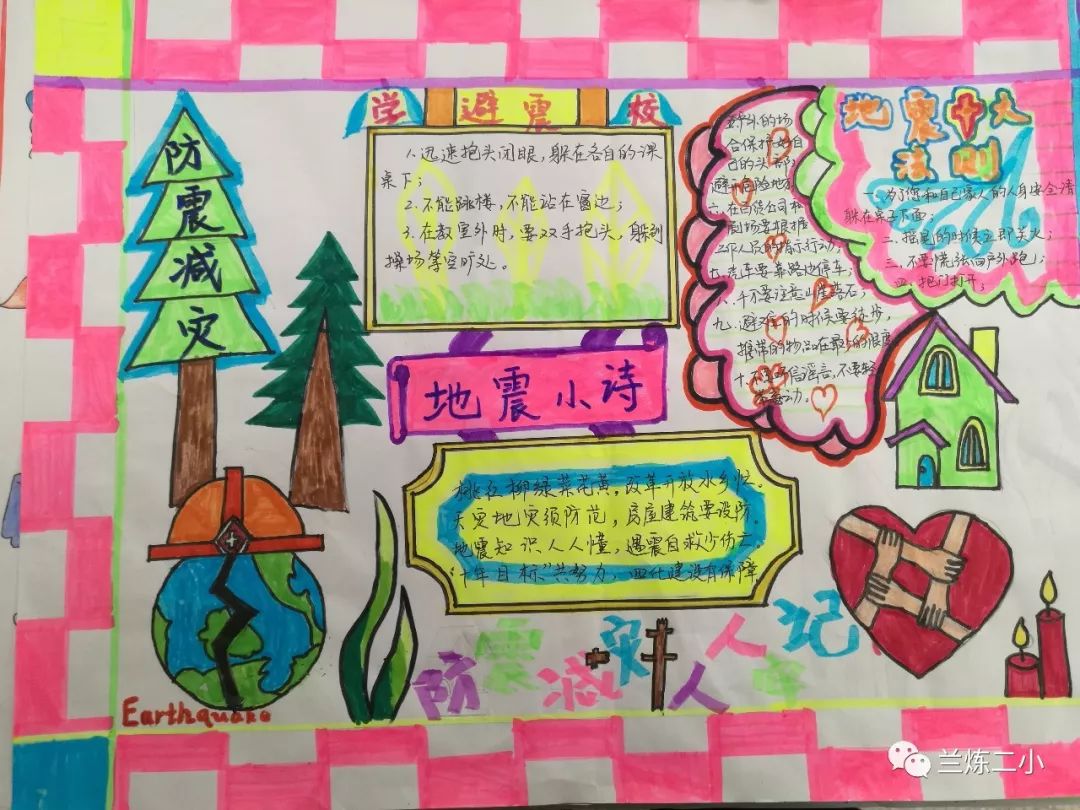 防震减灾
学避震校
1.迅速抱头闭眼,躲在各自的课
桌下;
2.不能跳楼,不能站在窗边;
3.在教室外时,要双手抱头,躲到
操场等空旷处。
地震十大
法则
一、为了您和自己家人的人身安全请
躲在桌子下面;
二、摇晃的时候立即关火;
三、不要慌张向户外跑;
四、把门打开;
户外的场
合保护好自
己的头部,
避开危险地
六、在百货公司和
剧场要根据
工作人员的指示行动;
七、汽车要靠路边停车;
八、千万要注意山崖落石;
九、避难的时候要徒步,
携带的物品在最少的限度
十、不要听信谣言,不要轻
举妄动。
地震小诗
桃红柳绿菜花黄,改革开放水乡忙。
天灾地灾须防范,房屋建筑要设防。
地震知识人人懂,遇震自救少伤亡。
"十年目标"共努力,四化建设有保障
防震减灾人人牢记
Earthquake
兰炼二小